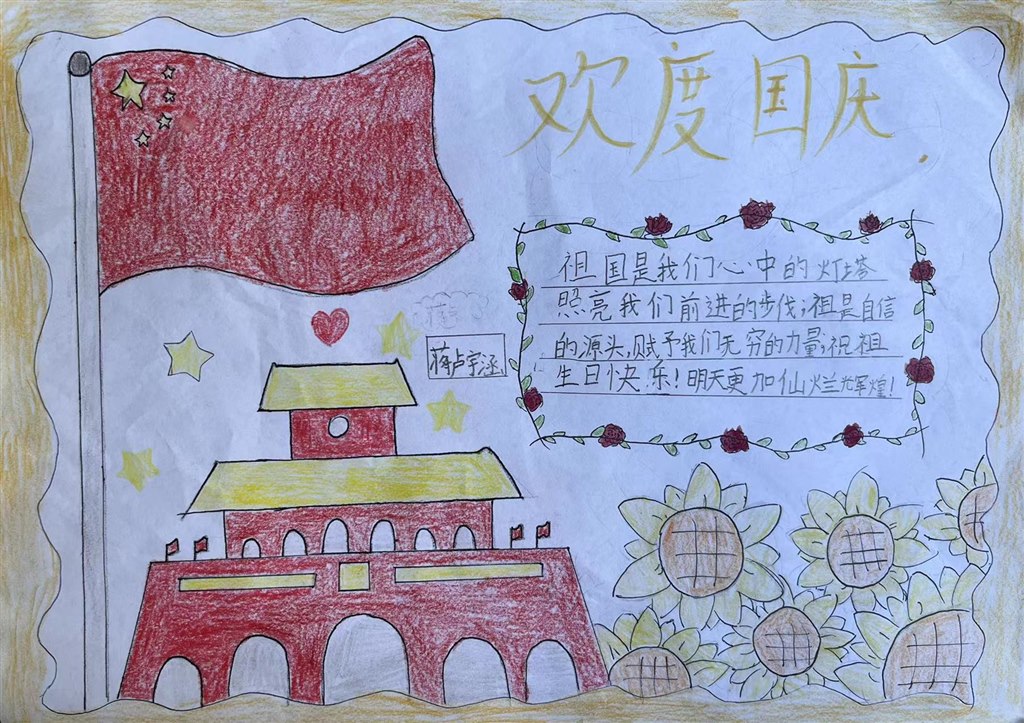 欢度国庆.
祖国是我们心中的灯塔
照亮我们前进的步伐;祖是自信
的源头,赋予我们无穷的力量;祝祖
生日快乐!明天更加仙灿烂光辉煌!
蒋卢宇涵